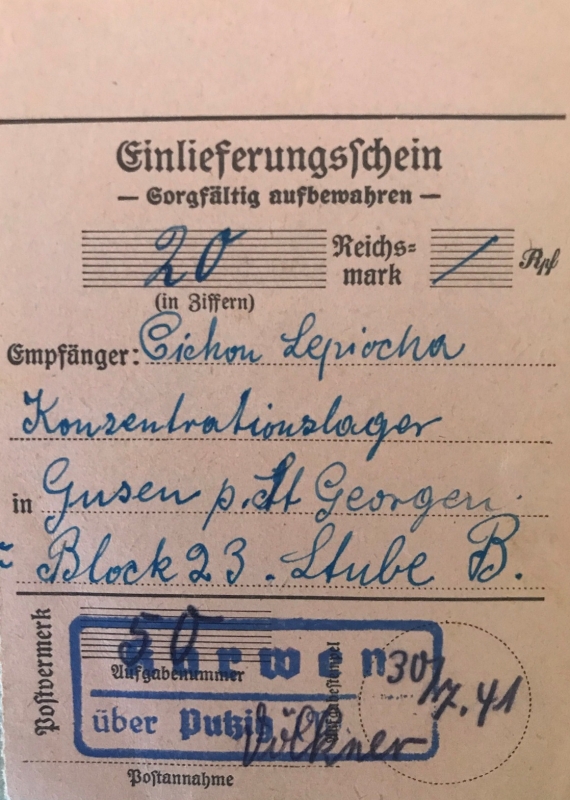 Einlieferungsschein
— Sorgfältig aufbewahren —
20 Reichs-
mark / Rpf
(in Ziffern)
Empfänger: Cichon Lepiocha
Konzentrationslager
in Gusen p. St Georgen.
Block 23. Stube B.
Postvermerk
50
Aufgabenummer
30/7.41
über Putzig
Völkner
Postannahme